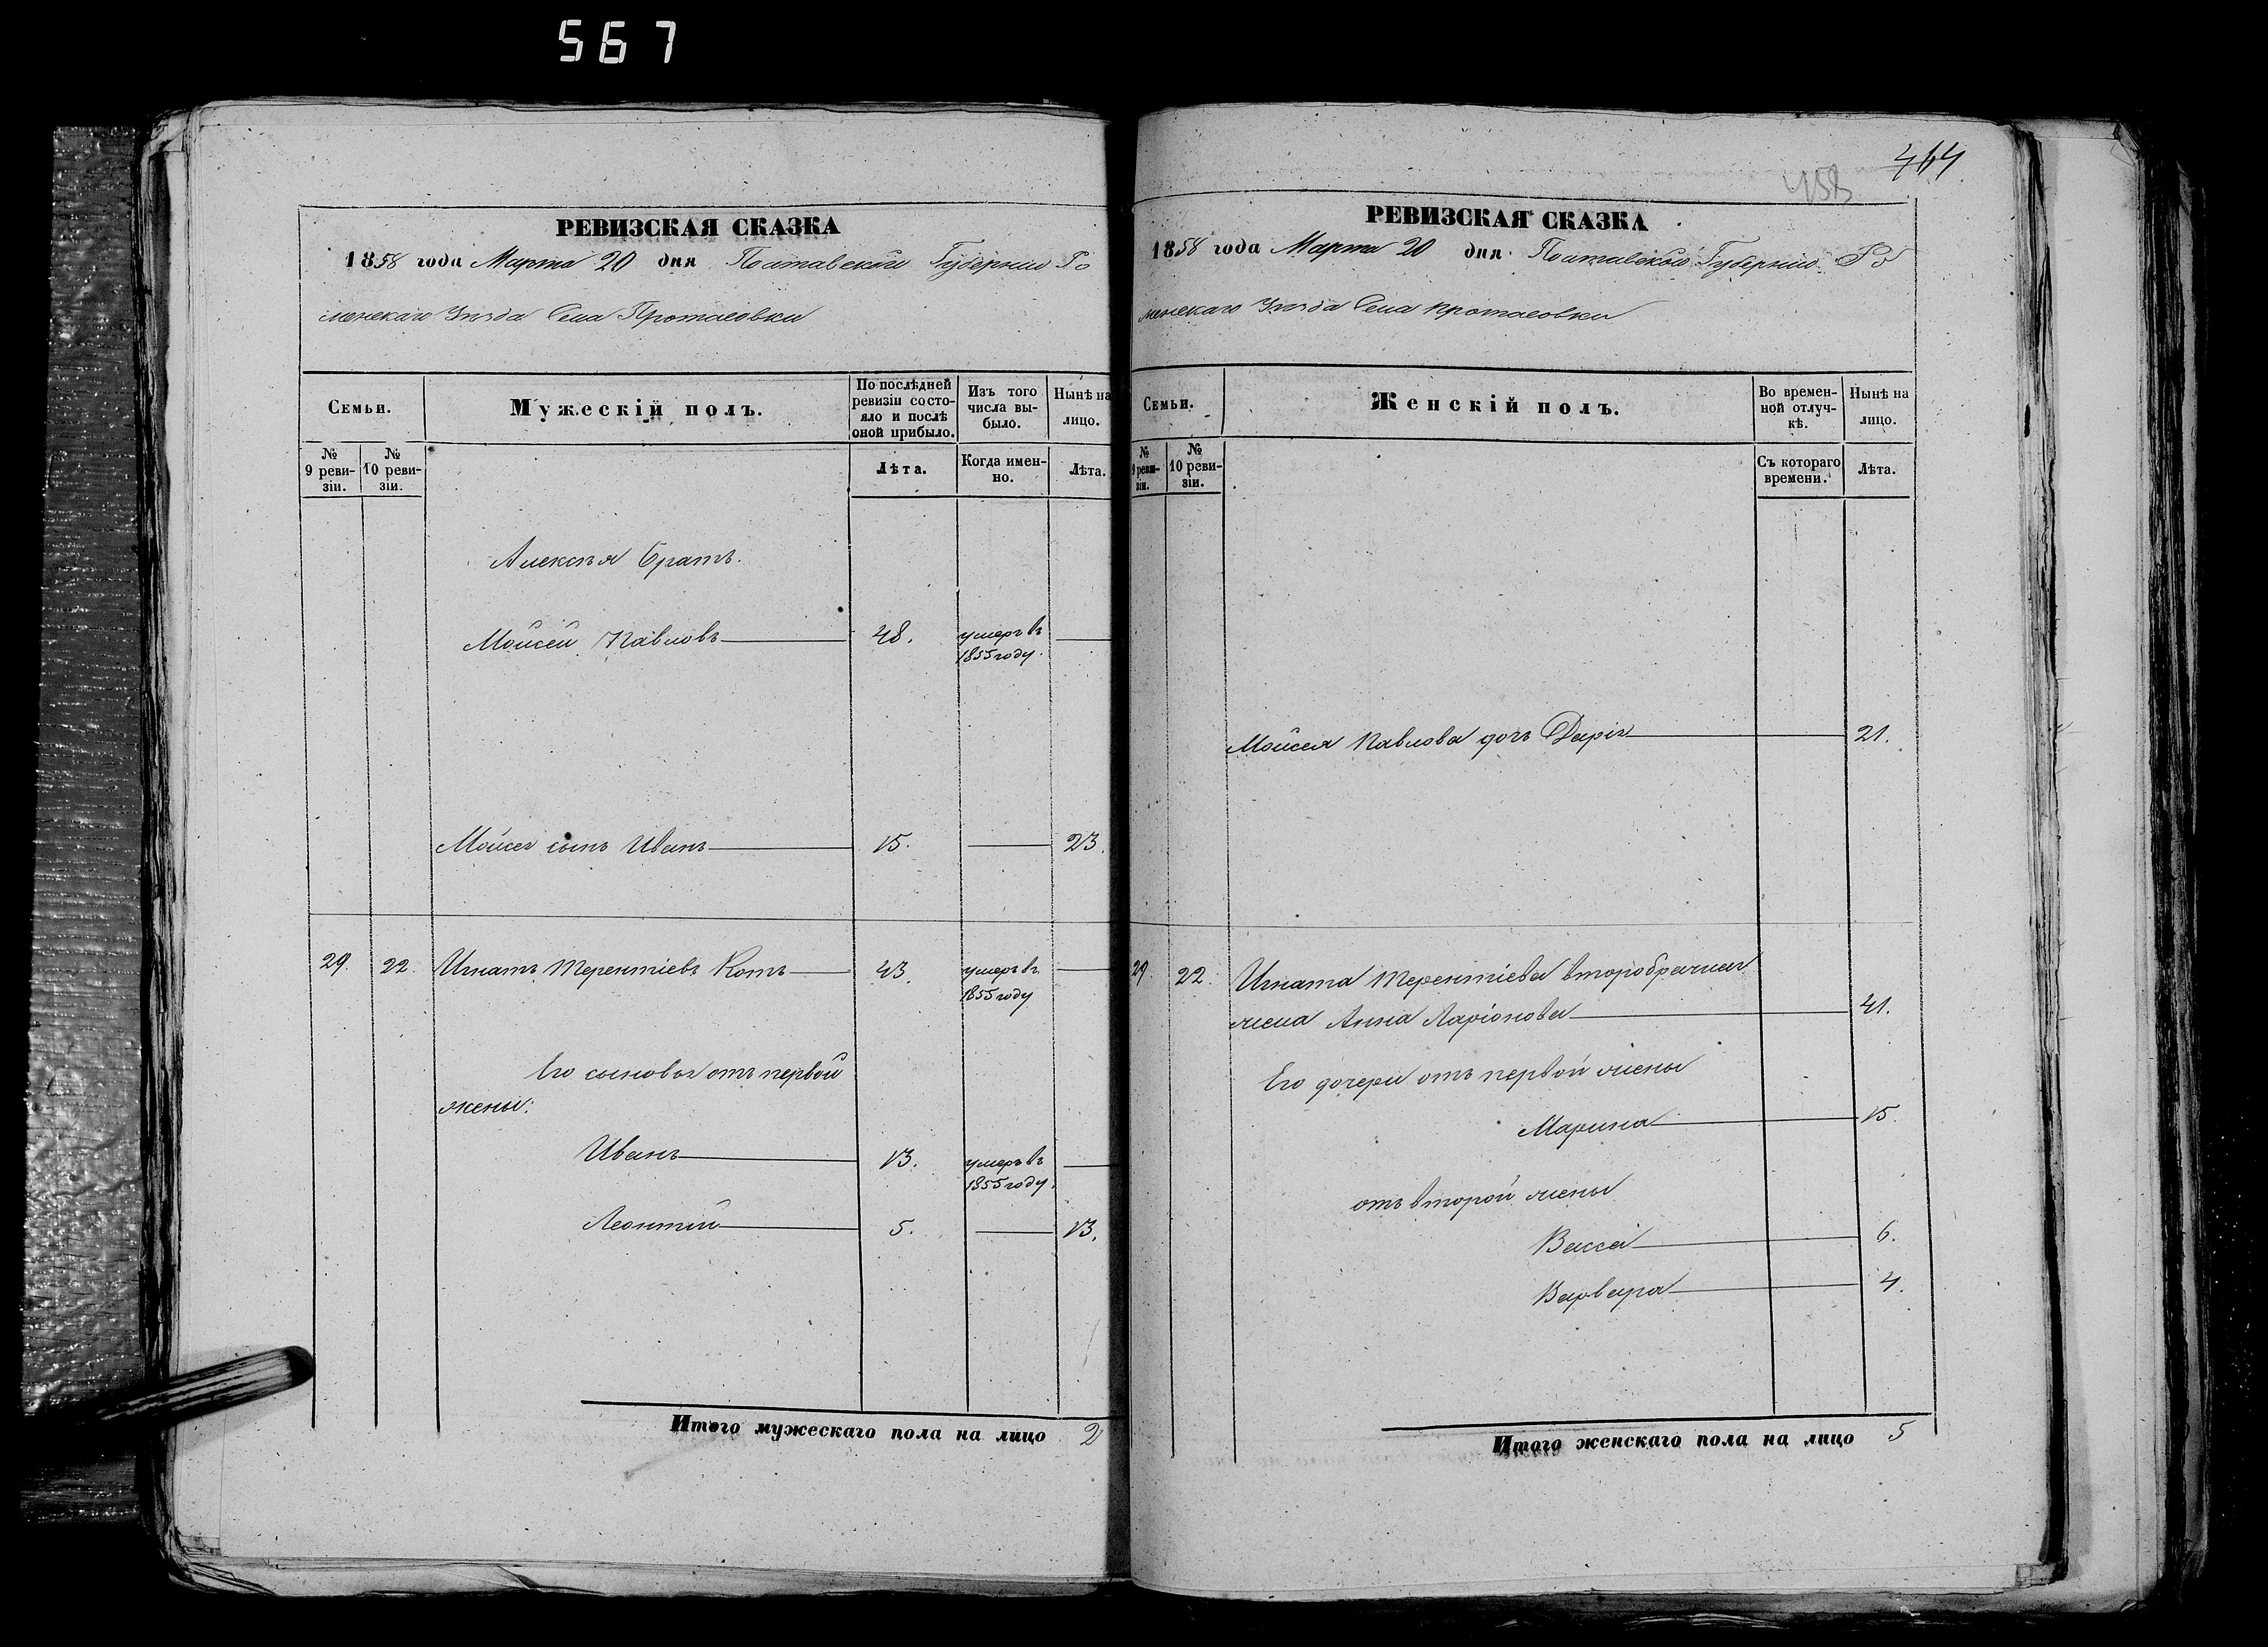 567
РЕВИЗСКАЯ СКАЗКА
1858 года Марта 20 дня Полтавской Губерніи Ро
менскаго Уѣзда Села Протасовки
Семьи.
Мужескій полъ.
По послѣдней
ревизіи состо-
яло и послѣ
оной прибыло.
Изъ того
числа вы-
было.
Нынѣ на
лицо.
№
9 реви-
зіи.
№
10 реви-
зіи.
Лѣта.
Когда имен-
но.
Лѣта.
Алексѣя братъ.
Мойсей Павловъ 48. умеръ въ
1855 году.
Мойсея сынъ Иванъ 15. 23.
29. 22. Игнатъ Терентіевъ Котъ 43. умеръ въ
1855 году
Его сыновья отъ первой
жены:
Иванъ 13. умеръ въ
1855 году.
Леонтій 5. 13.
Итого мужескаго пола на лицо 2
464
РЕВИЗСКАЯ СКАЗКА
1858 года Марта 20 дня Полтавской Губерніи Ро
менскаго Уѣзда Села Протасовки
Семьи.
Женскій полъ.
Во времен-
ной отлуч-
кѣ.
Нынѣ на
лицо.
№
9 реви-
зіи.
№
10 реви-
зіи.
Съ котораго
времени.
Лѣта.
Мойсея Павлова дочь Дарія 21.
29. 22. Игната Терентіева второбрачная
жена Анна Ларіонова 41.
Его дочери отъ первой жены
Марина 15.
отъ второй жены
Васса 6.
Варвара 4.
Итого женскаго пола на лицо 5